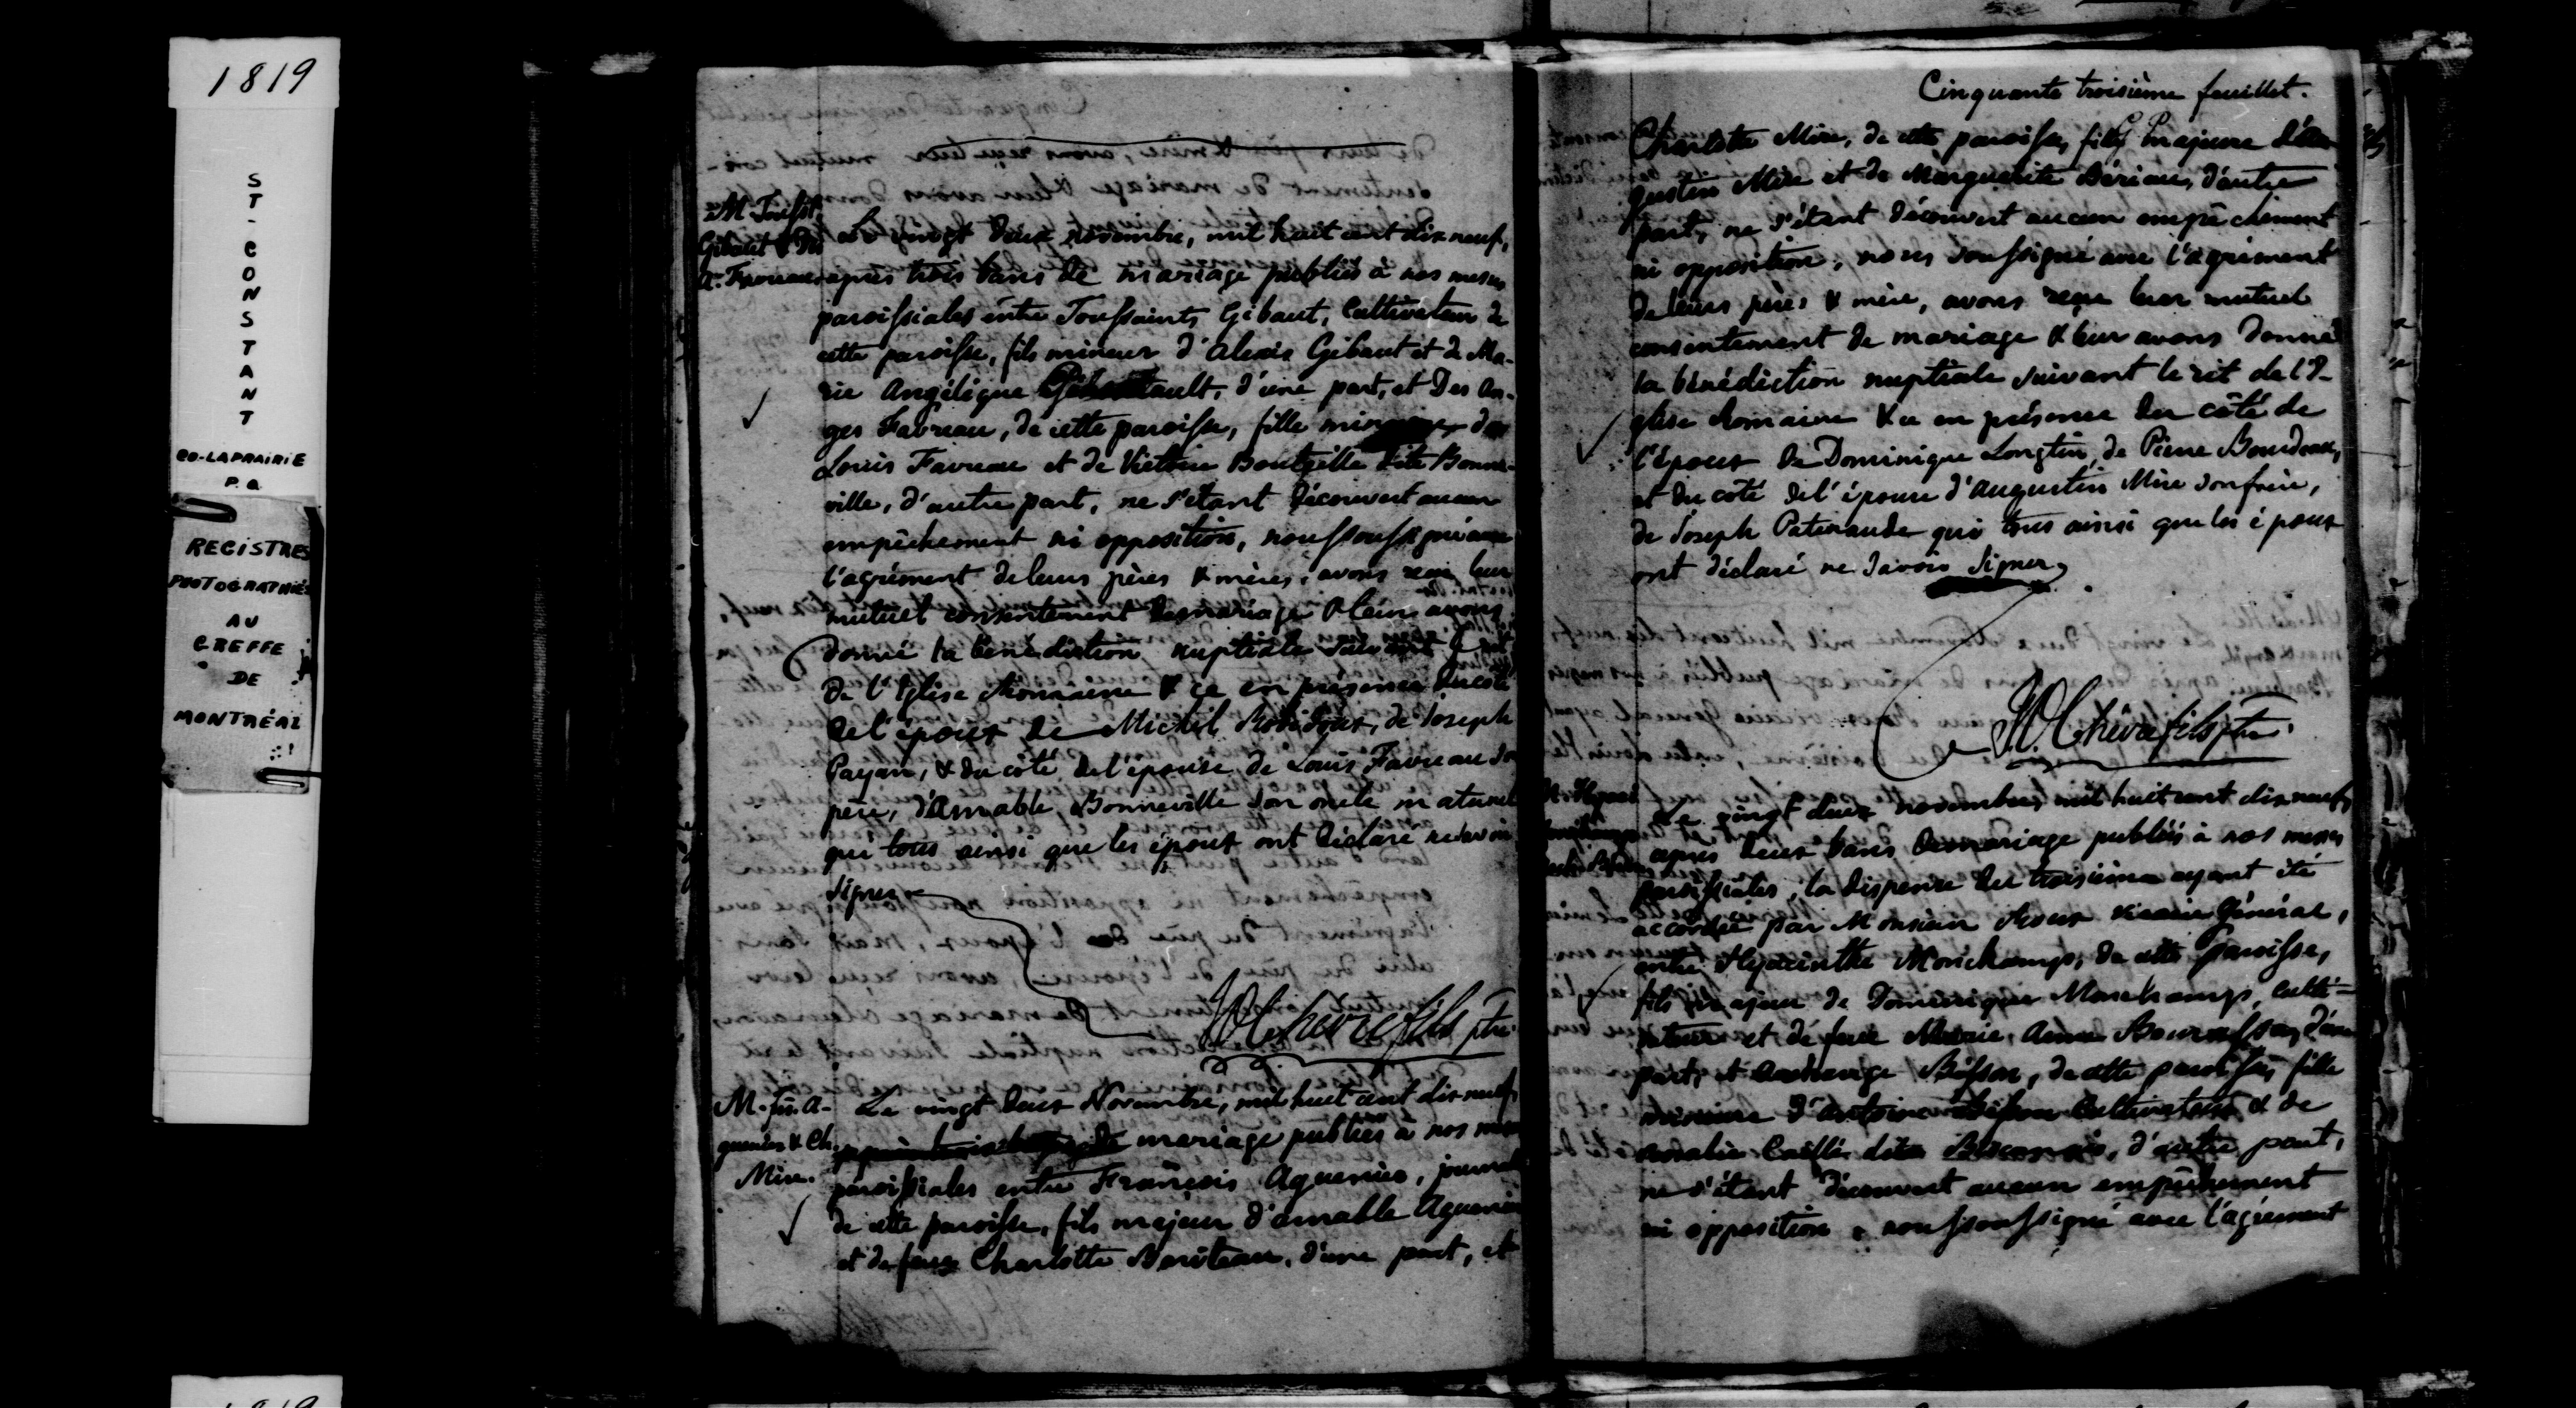 1819
ST-CONSTANT
CO-LAPRAIRIE
P.Q.
REGISTRES
PHOTOGRAPHIÉS
AU
GREFFE
DE
MONTRÉAL
M. Tousst.
Gibaut & Des
A. Favreau
Le vingt deux novembre, mil huit cent dix neuf,
après trois bans de mariage publiés à nos messes
paroissiales entre Toussaint Gibaut, Cultivateur de
cette paroisse, fils mineur d'Alexis Gibaut et de Ma-
rie Angélique d'une part, et Des An-
ges Favreau, de cette paroisse, fille mineure de
Louis Favreau et de Victoire Bouteille dite Bonne-
ville, d'autre part, ne s'étant découvert aucun
empêchement ni opposition, nous soussigné avec
l'agrément de leurs pères & mères, avons reçu leur
mutuel consentement de mariage & leur avons
donné la bénédiction nuptiale suivant le rit
de l'Eglise Romaine & ce en présence du côté
de l'époux de Michel Robidoux, de Joseph
Payan, & du côté de l'épouse de Louis Favreau son
père, d'Amable Bonneville son oncle maternel
qui tous ainsi que les époux ont déclaré ne savoir
signer
Chèvrefils ptre
M. frs. A-
guenier & Ch.
Mire.
Le vingt deux Novembre, mil huit cent dix neuf,
mariage publiés à nos messes
paroissiales entre François Aguenier, journal
de cette paroisse, fils majeur d'amable Aguenier
et de feue Charlotte Bariteau, d'une part, et
Cinquante troisième feuillet.
Charlotte Mire, de cette paroisse, fille majeure d'Au
gustin Mire et de Marguerite Bériau, d'autre
part, ne s'étant découvert aucun empêchement
ni opposition, nous soussigné avec l'agrément
de leurs pères & mère, avons reçu leur mutuel
consentement de mariage & leur avons donné
la bénédiction nuptiale suivant le rit de l'E-
glise Romaine & ce en présence du côté de
l'époux de Dominique Longtin, de Pierre Bourdeau,
et du côté de l'épouse d'Augustin Mire son frère,
de Joseph Patenaude qui tous ainsi que les époux
ont déclaré ne savoir signer
Chèvrefils ptre
Le vingt deux novembre, mil huit cent dix neuf,
après deux bans de mariage publiés à nos messes
paroissiales, la dispense du troisième ayant été
accordée par Monsieur Roux vicaire Général,
entre Hyacinthe Monchamp, de cette paroisse,
fils majeur de Dominique Monchamp, culti-
vateur et de feue Marie Anne d'une
part, et Archange Bisson, de cette paroisse, fille
mineure d'Antoine Bisson Cultivateur & de
Amable Caillé dite Biscornais, d'autre part,
ne s'étant découvert aucun empêchement
ni opposition, nous soussigné avec l'agrément